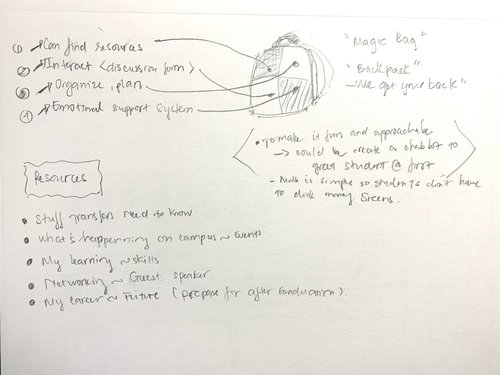 ① Can find resources
② Interact <discussion form>
③ Organize, plan
④ Emotional support system
"Magic Bag"
"Backpack"
- We got your back"
• To make it fun and approachable
→ could be create a chatbot to
greet student @ first
- is simple so students don't have
to click many screens.
Resources
• Stuff transfers need to know
• What's happenning on campus ~ Events
• My learning ~ skills
• Networking ~ Guest speaker.
• My career ~ Future (prepare for after Graduation).